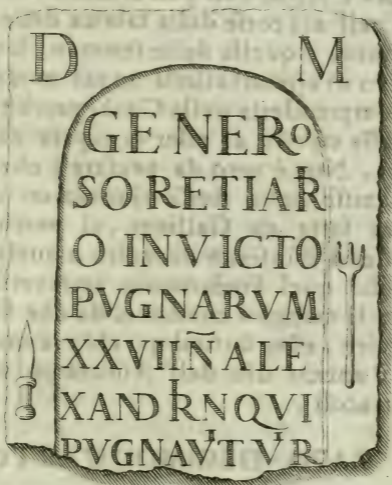 D M
GENERO
SO RETIAR
O INVICTO
PVGNARVM
XXVII N̄ ALE
XANDRNQVI
PVGNAVT VR